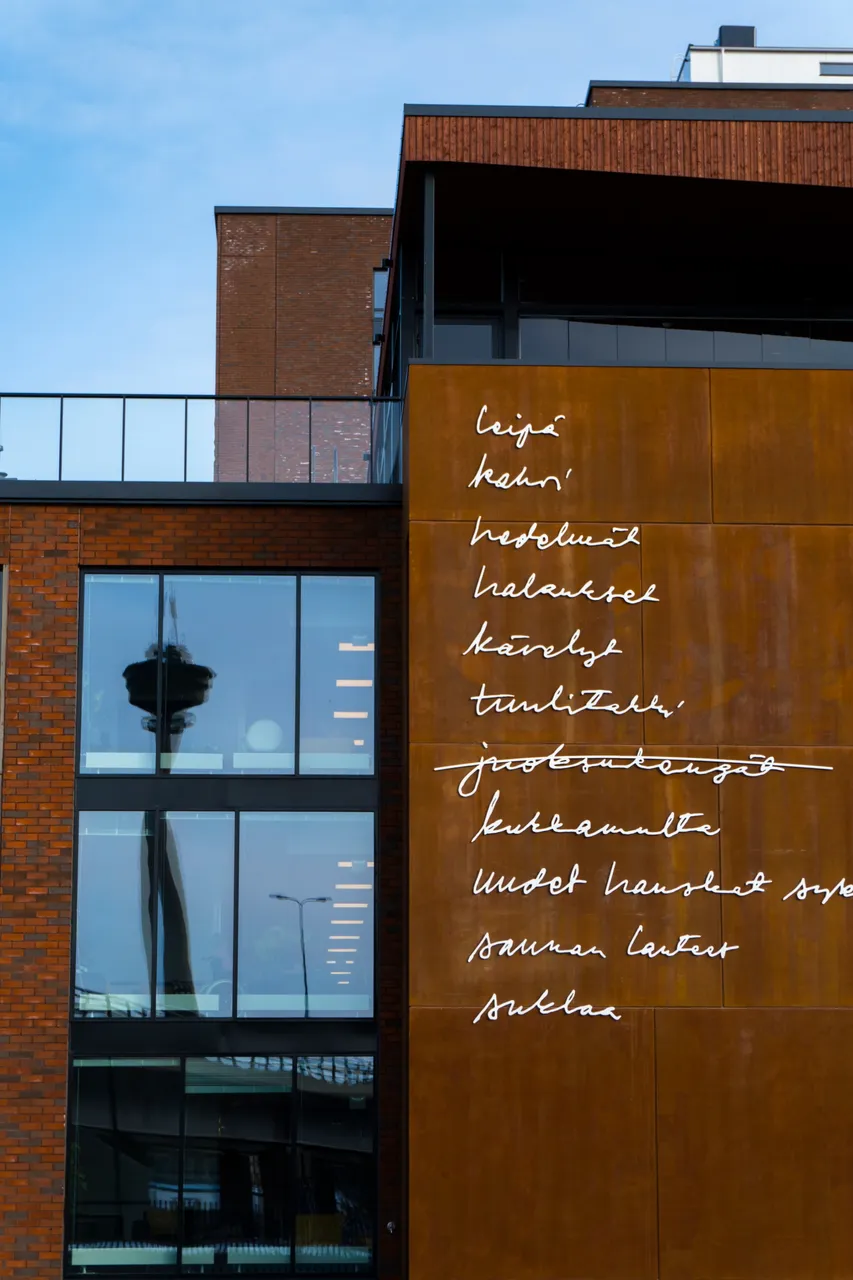 leipä
kahvi
hedelmät
halaukset
kävelyt
tuulitakki
juoksukengät
kukkamulta
uudet hauskat syk
saunan lauteet
suklaa